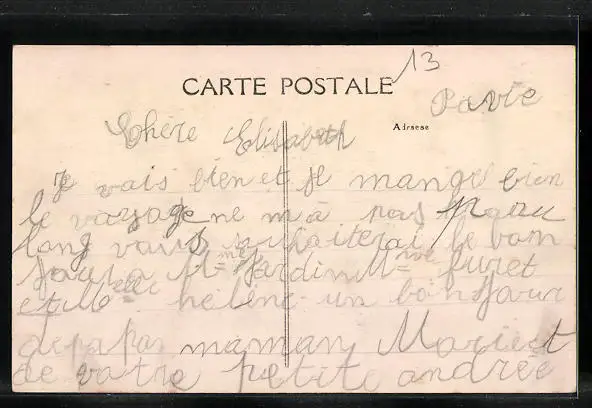 13
CARTE POSTALE
Pavie
Adresse
Chère Elisabeth
Je vais bien et je mange bien
le voyage ne m'a pas paru
long vous souhaiterai le bon
jour a Mme Jardin Mme furet
et Mlle helène un bonjour
de papa maman Marie et
de votre petite andrée